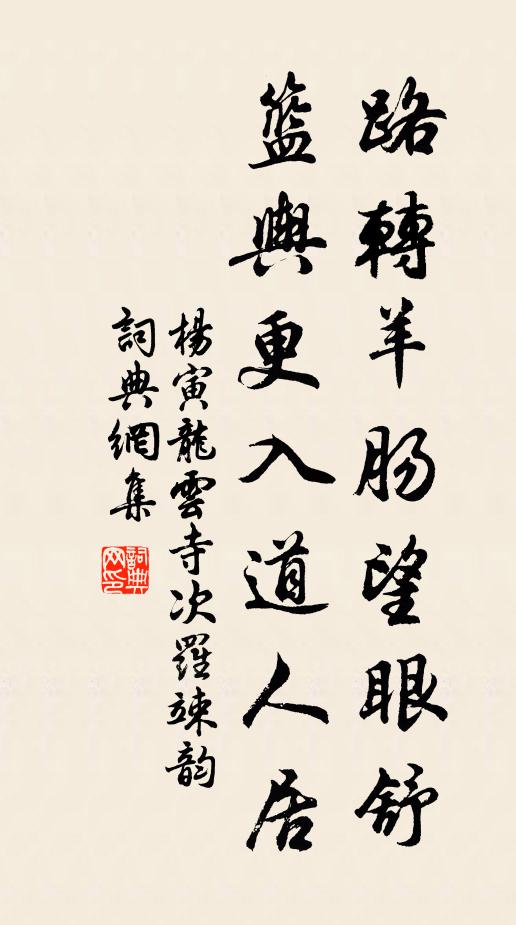 路轉羊腸望眼舒
籃輿更入道人居
楊寅龍雲寺次羅竦韵
詞典網集
詞典网印